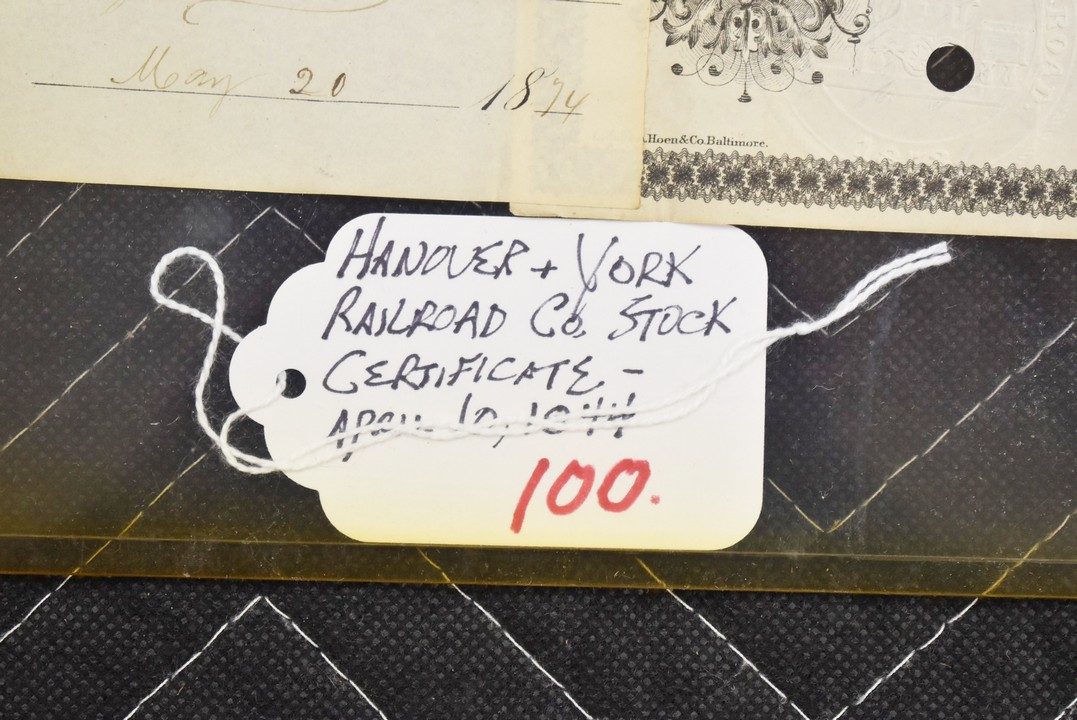 May 20 1874
A.Hoen&Co.Baltimore.
HANOVER + YORK
RAILROAD Co. STOCK
CERTIFICATE -
APRIL 10,
100.